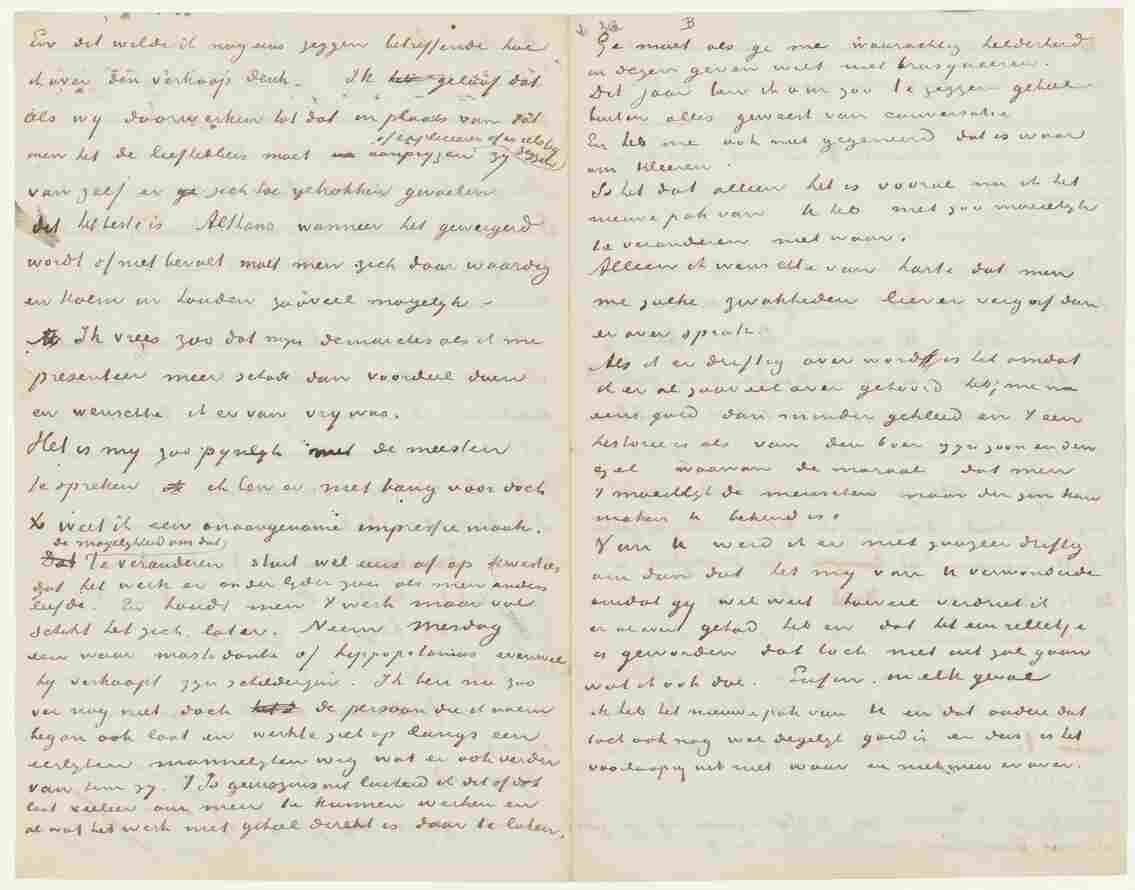 En dit wilde ik nog eens zeggen betreffende hoe
ik over den verkoop denk. Ik geloof dat
als wy doorwerken tot dat in plaats van dat
of expliceeren of er iets by zeggen
men het de liefhebbers moet aanpryzen zy
van zelf er zich toe getrokken gevoelen
dit het beste is. Althans wanneer het geweigerd
wordt of niet bevalt moet men zich daar waardig
en kalm in houden zooveel mogelyk –
Ik vrees zoo dat myn demarches als ik me
presenteer meer schade dan voordeel doen
en wenschte ik er van vry was.
Het is my zoo pynelyk met de meesten
te spreken ik ben er niet bang voor doch
weet ik een onaangename impressie maak.
de mogelykheid om dat
Te veranderen stuit wel eens af op kwesties
dat het werk er onder lyden zou als men anders
leefde. En houdt men 't werk maar vol
schikt het zich later. Neem Mesdag
een waar mastodonte of hyppopotamus evenwel
hy verkoopt zyn schilderyen. Ik ben nu zoo
ver nog niet doch de persoon die ik noem
begon ook laat en werkte zich op langs een
eerlyken mannelyken weg wat er ook verder
van hem zy. 't Is geenszins uit luiheid ik dit of dat
laat veeleer om meer te kunnen werken en
al wat het werk niet geheel direkt is daar te laten.
B
Ge moet als ge me waarachtig helderheid
in dezen geven wilt niet brusqueeren.
Dit jaar ben ik om zoo te zeggen geheel
buiten alles geweest van conversatie
En heb me ook niet gegeneerd dat is waar
om kleeren.
Is het dat alleen het is vooral nu ik het
nieuwe pak van U heb niet zoo moeielyk
te veranderen niet waar.
Alleen ik wenschte van harte dat men
me zulke zwakheden liever vergaf dan
er over sprak.
Als ik er driftig over word is het omdat
ik er al zooveel over gehoord heb; me nu
eens goed dan minder gekleed en 't een
historie is als van den boer zyn zoon en den
ezel waarvan de moraal dat men
't moeielyk de menschen naar den zin kan
maken U bekend is.
Van U werd ik er niet zoozeer driftig
om dan dat het my van U verwonderde
omdat gy wel weet hoeveel verdriet ik
er al over gehad heb en dat het een relletje
is geworden dat toch niet uit zal gaan
wat ik ook doe. Enfin, in elk geval
ik heb het nieuwe pak van U en dat oudere dat
toch ook nog wel degelyk goed is en dus is het
voorloopig uit niet waar en niet meer er over.